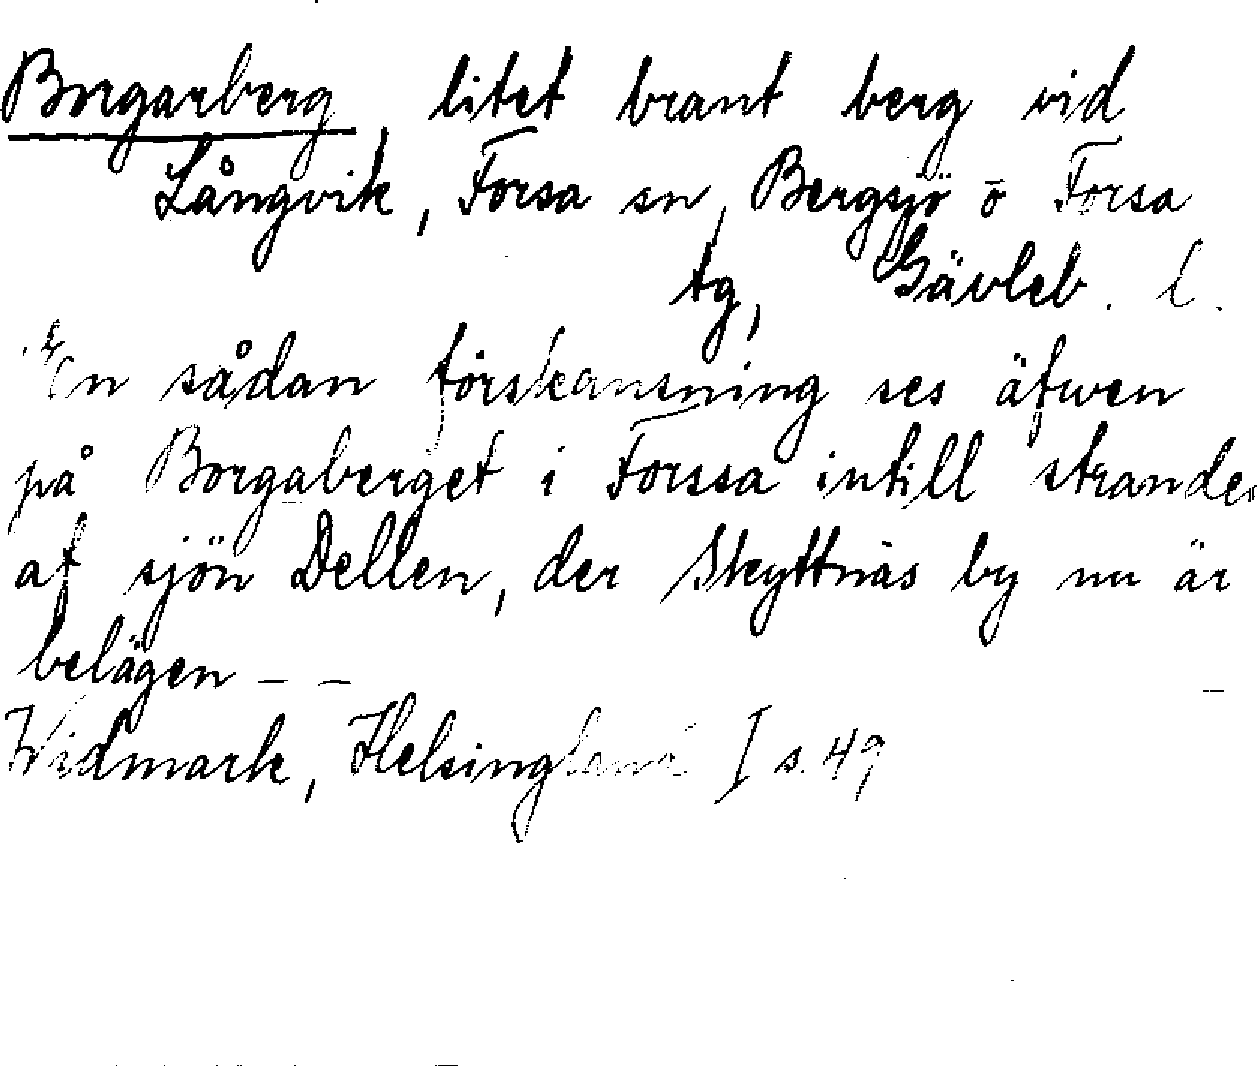 Borgarberg, litet brant berg vid
Långvik, Forsa sn, Bergsjö o Forsa
tg, Gävleb. l.
En sådan förskansning ses äfwen
på Borgaberget i Forssa intill stranden
af sjön Dellen, der Skyttnäs by nu är
belägen – –
Widmark, Helsingland I s. 49